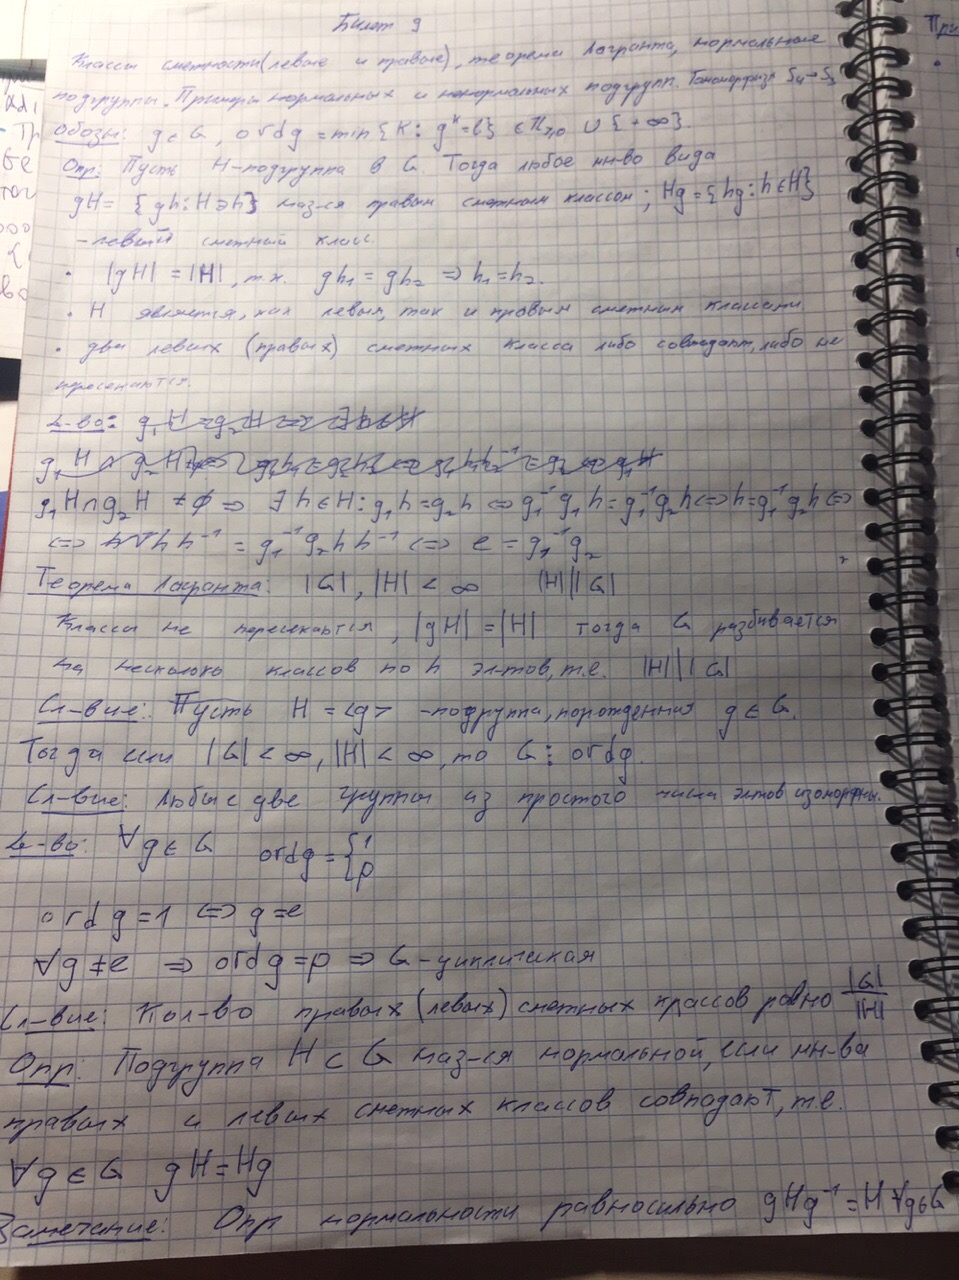 Билет 9
Классы смежности (левые и правые), теорема Лагранжа, нормальные
подгруппы. Примеры нормальных и ненормальных подгрупп. Гомоморфизм S₄→S₃
Обозн: g∈G, ord g = min{k: gᵏ=e} ∈ ℤ>0 ∪ {+∞}.
Опр: Пусть H-подгруппа в G Тогда любое мн-во вида
gH = {gh: H∋h} наз-ся правым смежным классом; Hg = {hg: h∈H}
- левый смежный класс.
· |gH| = |H|, т.к. gh₁ = gh₂ ⇒ h₁=h₂.
· H является, как левым, так и правым смежным классами.
· два левых (правых) смежных класса либо совпадают, либо не
пересекаются.
Д-во:
g₁H∩g₂H ≠ ∅ ⇒ ∃ h∈H: g₁h = g₂h ⇔ g₁⁻¹g₁h = g₁⁻¹g₂h ⇔ h = g₁⁻¹g₂h ⇔
⇔ hh⁻¹ = g₁⁻¹g₂hh⁻¹ ⇔ e = g₁⁻¹g₂
Теорема Лагранжа: |G|, |H| < ∞ |H| | |G|
Классы не пересекаются, |gH| = |H| тогда G разбивается
на несколько классов по h эл-тов, т.е. |H| | |G|
Сл-вие: Пусть H = <g> -подгруппа, порожденная g∈G.
Тогда если |G| < ∞, |H| < ∞, то G ⋮ ord g.
Сл-вие: Любые две группы из простого числа эл-тов изоморфны.
Д-во: ∀g∈G ord g = {1 p
ord g = 1 ⇔ g=e
∀g ≠ e ⇒ ord g = p ⇒ G - циклическая
Сл-вие: Кол-во правых (левых) смежных классов равно |G|/|H|
Опр: Подгруппа H ⊂ G наз-ся нормальной, если мн-ва
правых и левых смежных классов совпадают, т.е.
∀g∈G gH = Hg
Замечание: Опр нормальности равносильно gHg⁻¹ = H ∀g∈G